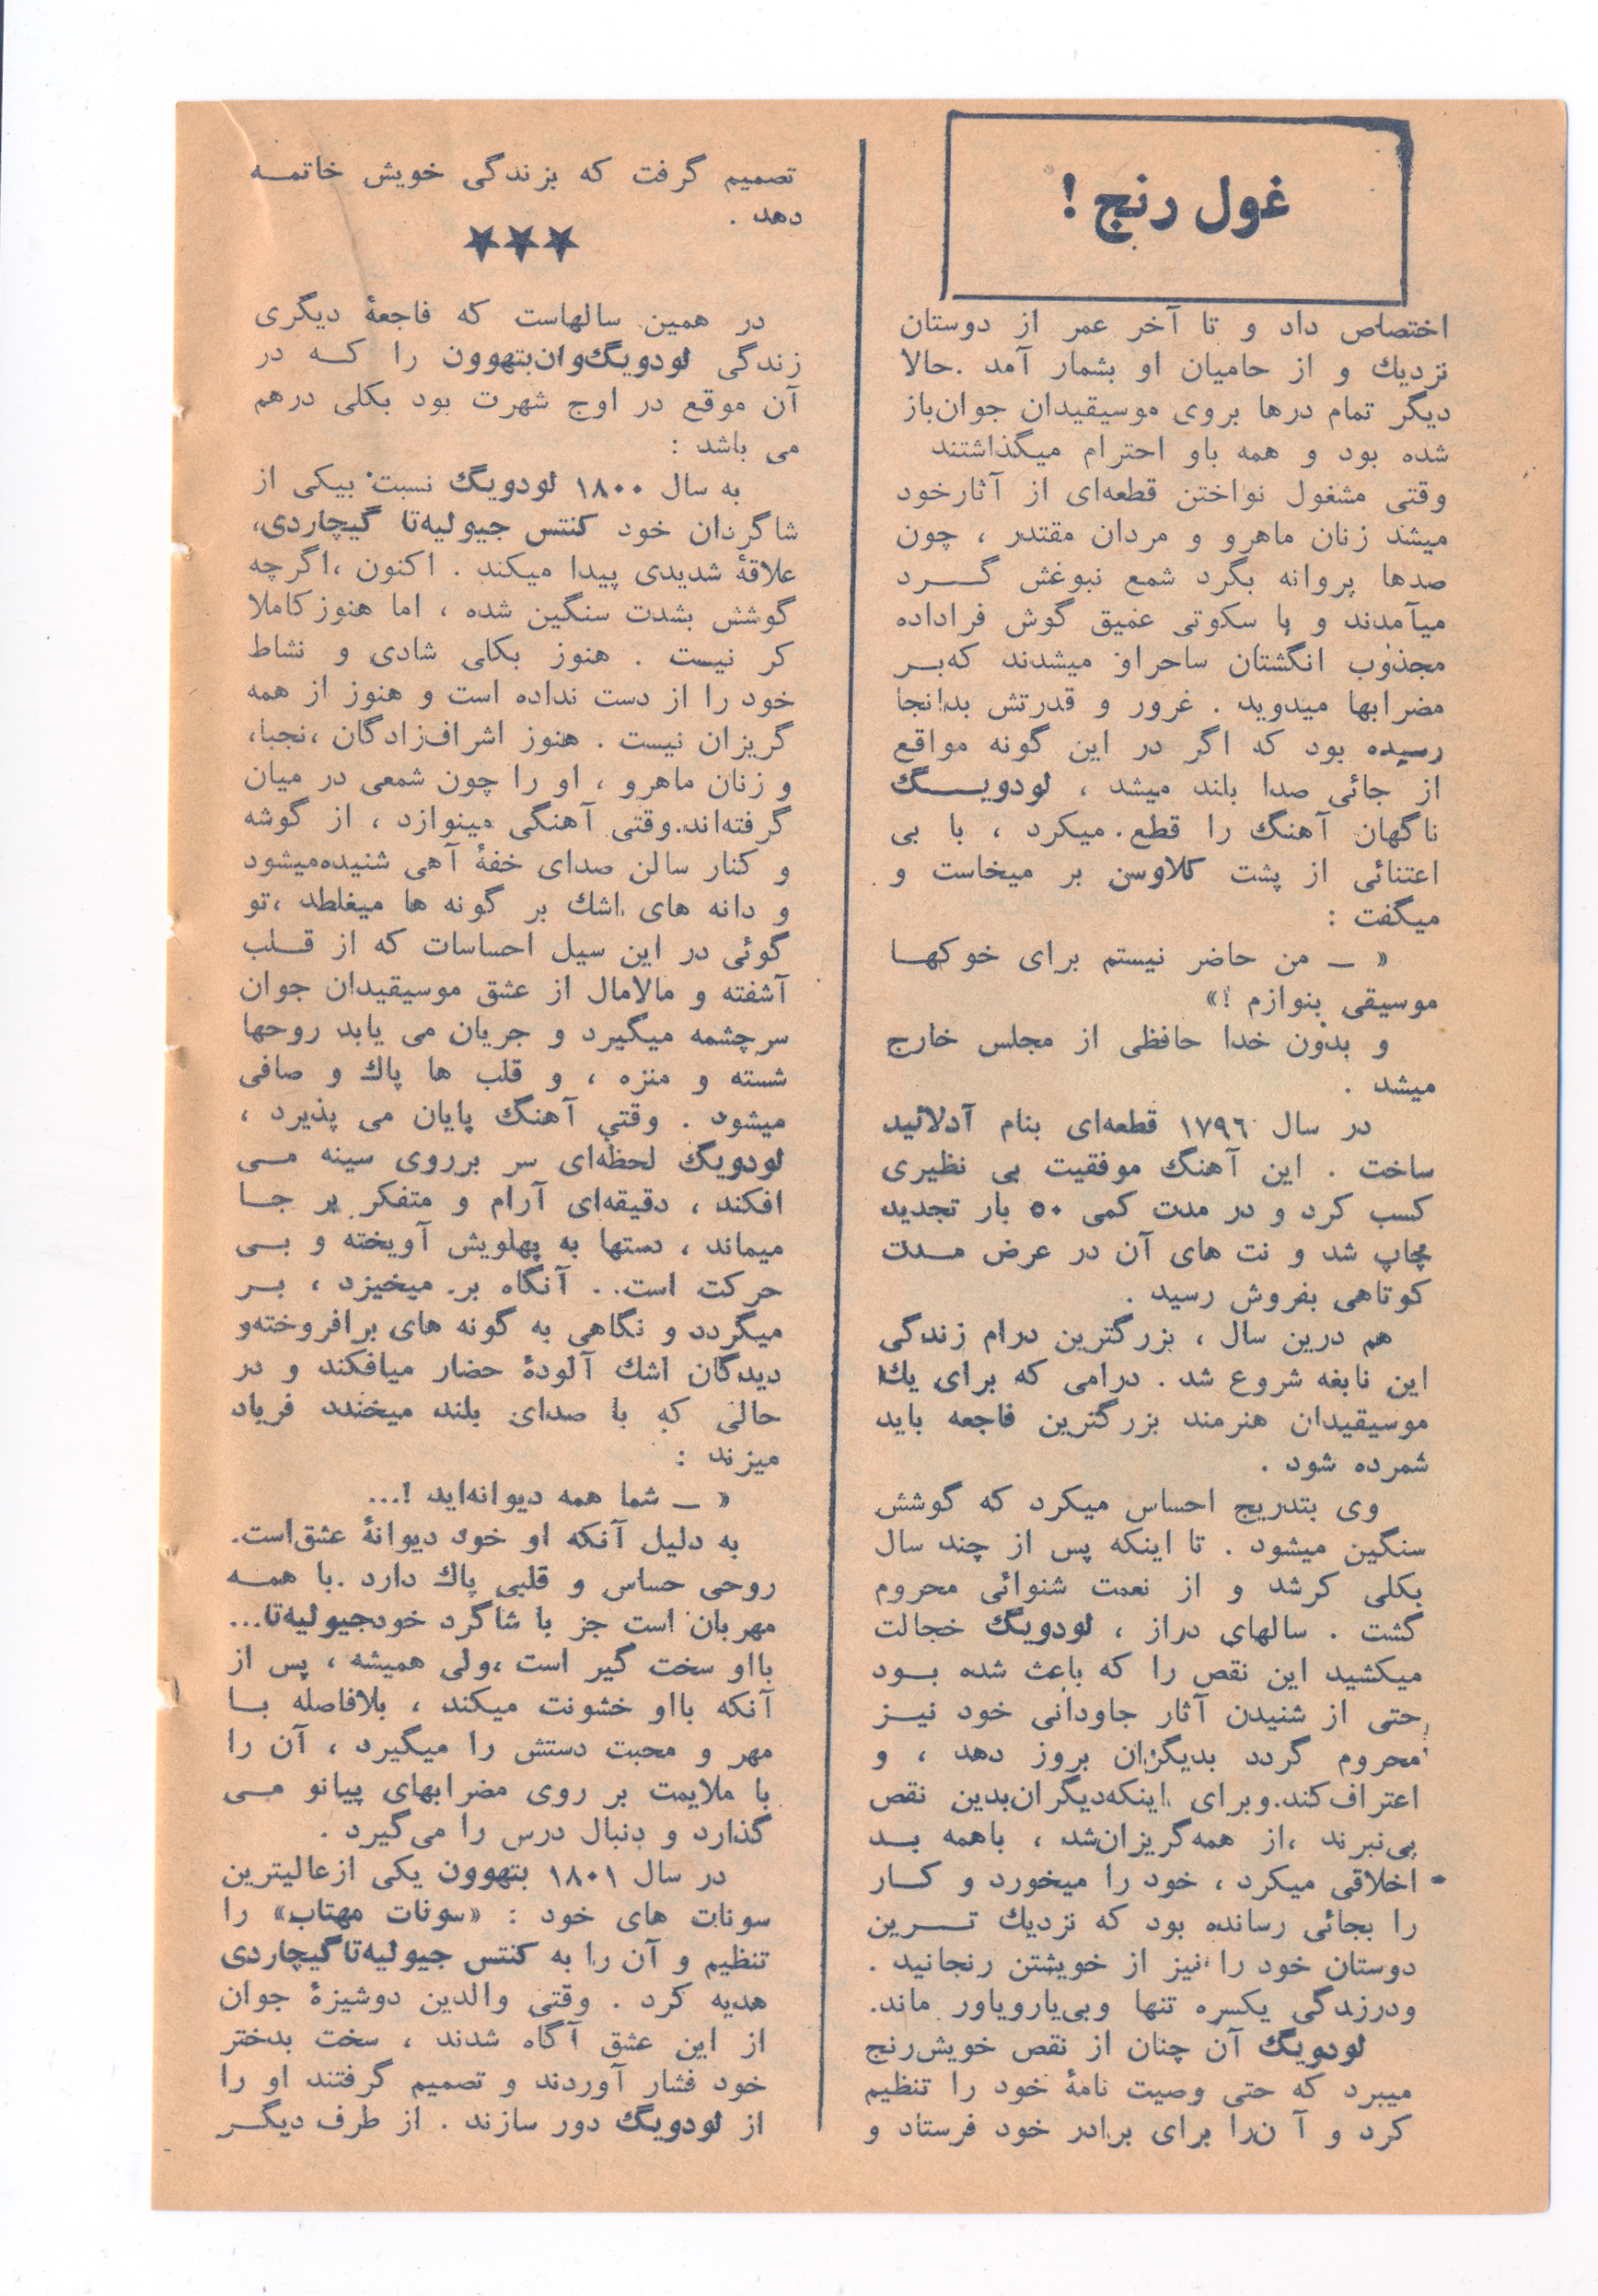 غول رنج !
اختصاص داد و تا آخر عمر از دوستان
نزدیك و از حامیان او بشمار آمد .حالا
دیگر تمام درها بروی موسیقیدان جوان‌باز
شده بود و همه باو احترام میگذاشتند
وقتی مشغول نواختن قطعه‌ای از آثارخود
میشد زنان ماهرو و مردان مقتدر ، چون
صدها پروانه بگرد شمع نبوغش گرد
میآمدند و با سکوتی عمیق گوش فراداده
مجذوب انگشتان ساحراو میشدند که‌بر
مضرابها میدوید . غرور و قدرتش بدانجا
رسیده بود که اگر در این گونه مواقع
از جائی صدا بلند میشد ، لودویگ
ناگهان آهنگ را قطع میکرد ، با بی
اعتنائی از پشت کلاوسن بر میخاست و
میگفت :
« ـ من حاضر نیستم برای خوکها
موسیقی بنوازم !»
و بدون خدا حافظی از مجلس خارج
میشد .
در سال ۱۷۹٦ قطعه‌ای بنام آدلائید
ساخت . این آهنگ موفقیت بی نظیری
کسب کرد و در مدت کمی ۵۰ بار تجدید
چاپ شد و نت های آن در عرض مدت
کوتاهی بفروش رسید .
هم درین سال ، بزرگترین درام زندگی
این نابغه شروع شد . درامی که برای یك
موسیقیدان هنرمند بزرگترین فاجعه باید
شمرده شود .
وی بتدریج احساس میکرد که گوشش
سنگین میشود . تا اینکه پس از چند سال
بکلی کرشد و از نعمت شنوائی محروم
گشت . سالهای دراز ، لودویگ خجالت
میکشید این نقص را که باعث شده بود
حتی از شنیدن آثار جاودانی خود نیز
محروم گردد بدیگران بروز دهد ، و
اعتراف‌کند.وبرای اینکه‌دیگران‌بدین نقص
پی‌نبرند ،از همه‌گریزان‌شد ، باهمه بد
اخلاقی میکرد ، خود را میخورد و کار
را بجائی رسانده بود که نزدیك ترین
دوستان خود را نیز از خویشتن رنجانید .
ودرزندگی یکسره تنها وبی‌یارویاور ماند.
لودویگ آن چنان از نقص خویش‌رنج
میبرد که حتی وصیت نامهٔ خود را تنظیم
کرد و آ ن‌را برای برادر خود فرستاد و
تصمیم گرفت که بزندگی خویش خاتمه
دهد .
★★★
در همین سالهاست که فاجعهٔ دیگری
زندگی لودویگ‌وان‌بتهوون را که در
آن موقع در اوج شهرت بود بکلی درهم
می باشد :
به سال ۱۸۰۰ لودویگ نسبت بیکی از
شاگردان خود کنتس جیولیه‌تا گیچاردی،
علاقهٔ شدیدی پیدا میکند . اکنون ،اگرچه
گوشش بشدت سنگین شده ، اما هنوزکاملا
کر نیست . هنوز بکلی شادی و نشاط
خود را از دست نداده است و هنوز از همه
گریزان نیست . هنوز اشراف‌زادگان ،نجبا،
و زنان ماهرو ، او را چون شمعی در میان
گرفته‌اند.وقتی آهنگی مینوازد ، از گوشه
و کنار سالن صدای خفهٔ آهی شنیده‌میشود
و دانه های اشك بر گونه ها میغلطد ،تو
گوئی در این سیل احساسات که از قلب
آشفته و مالامال از عشق موسیقیدان جوان
سرچشمه میگیرد و جریان می یابد روحها
شسته و منزه ، و قلب ها پاك و صافی
میشود . وقتی آهنگ پایان می پذیرد ،
لودویگ لحظه‌ای سر برروی سینه می
افکند ، دقیقه‌ای آرام و متفکر بر جا
میماند ، دستها به پهلویش آویخته و بی
حرکت است . آنگاه بر میخیزد ، بر
میگردد و نگاهی به گونه های برافروخته‌و
دیدگان اشك آلودهٔ حضار میافکند و در
حالی که با صدای بلند میخندد فریاد
میزند :
« ـ شما همه دیوانه‌اید !...
به دلیل آنکه او خود دیوانهٔ عشق‌است.
روحی حساس و قلبی پاك دارد .با همه
مهربان است جز با شاگرد خودجیولیه‌تا...
بااو سخت گیر است ،ولی همیشه ، پس از
آنکه بااو خشونت میکند ، بلافاصله با
مهر و محبت دستش را میگیرد ، آن را
با ملایمت بر روی مضرابهای پیانو می
گذارد و دنبال درس را می‌گیرد .
در سال ۱۸۰۱ بتهوون یکی ازعالیترین
سونات های خود : «سونات مهتاب» را
تنظیم و آن را به کنتس جیولیه‌تاگیچاردی
هدیه کرد . وقتی والدین دوشیزهٔ جوان
از این عشق آگاه شدند ، سخت بدختر
خود فشار آوردند و تصمیم گرفتند او را
از لودویگ دور سازند . از طرف دیگر